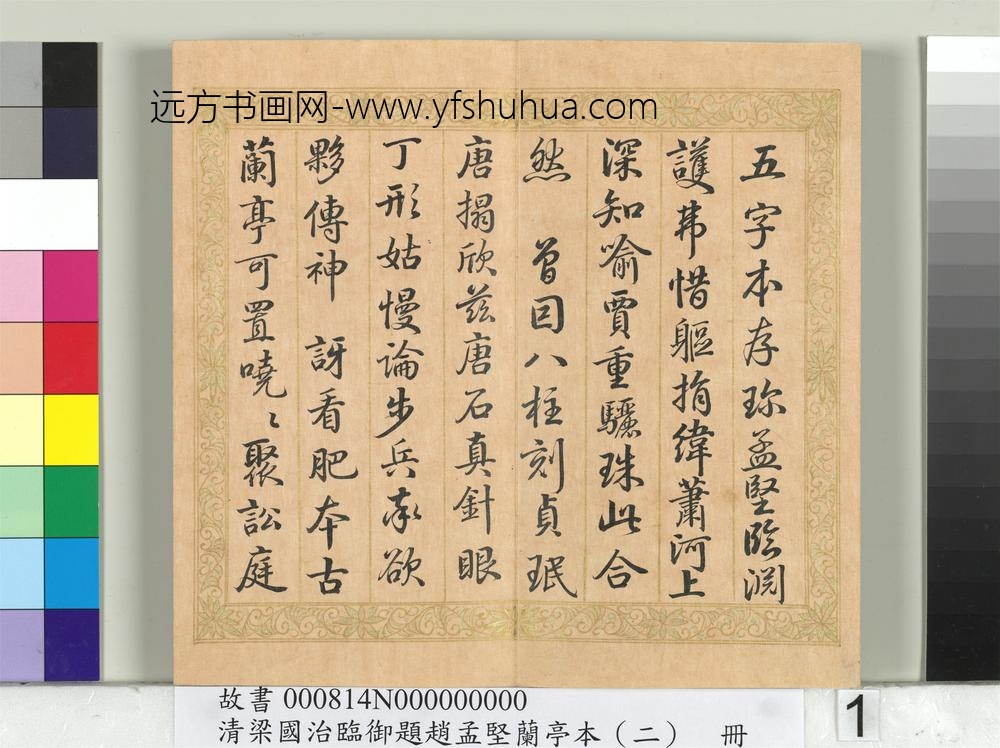 远方书画网-www.yfshuhua.com
五字本存珎孟堅臨渕
護弗惜軀捐緯蕭河上
深知喻賈重驪珠此合
然 曾囙八柱刻貞珉
唐搨欣兹唐石真針眼
丁形姑慢論步兵欲
夥傳神 訝看肥本古
蘭亭可置嘵〻聚訟庭
故書 000814N000000000
清梁國治臨御題趙孟堅蘭亭本（二） 冊
1